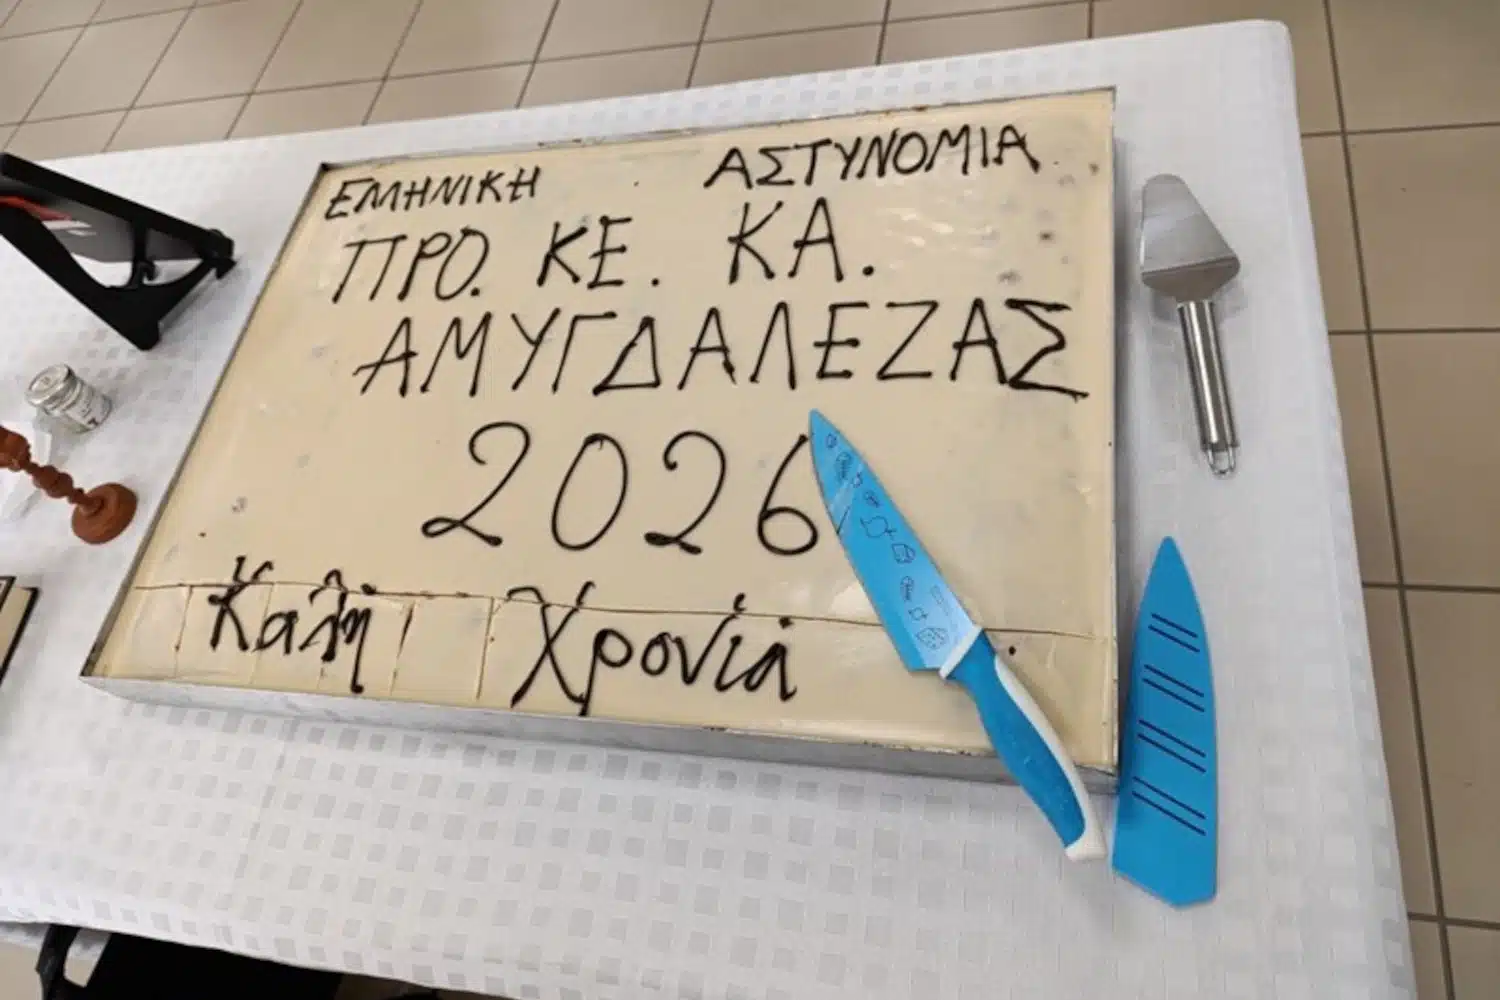 ΕΛΛΗΝΙΚΗ ΑΣΤΥΝΟΜΙΑ
ΠΡΟ. ΚΕ. ΚΑ.
ΑΜΥΓΔΑΛΕΖΑΣ
2026
Καλή Χρονιά